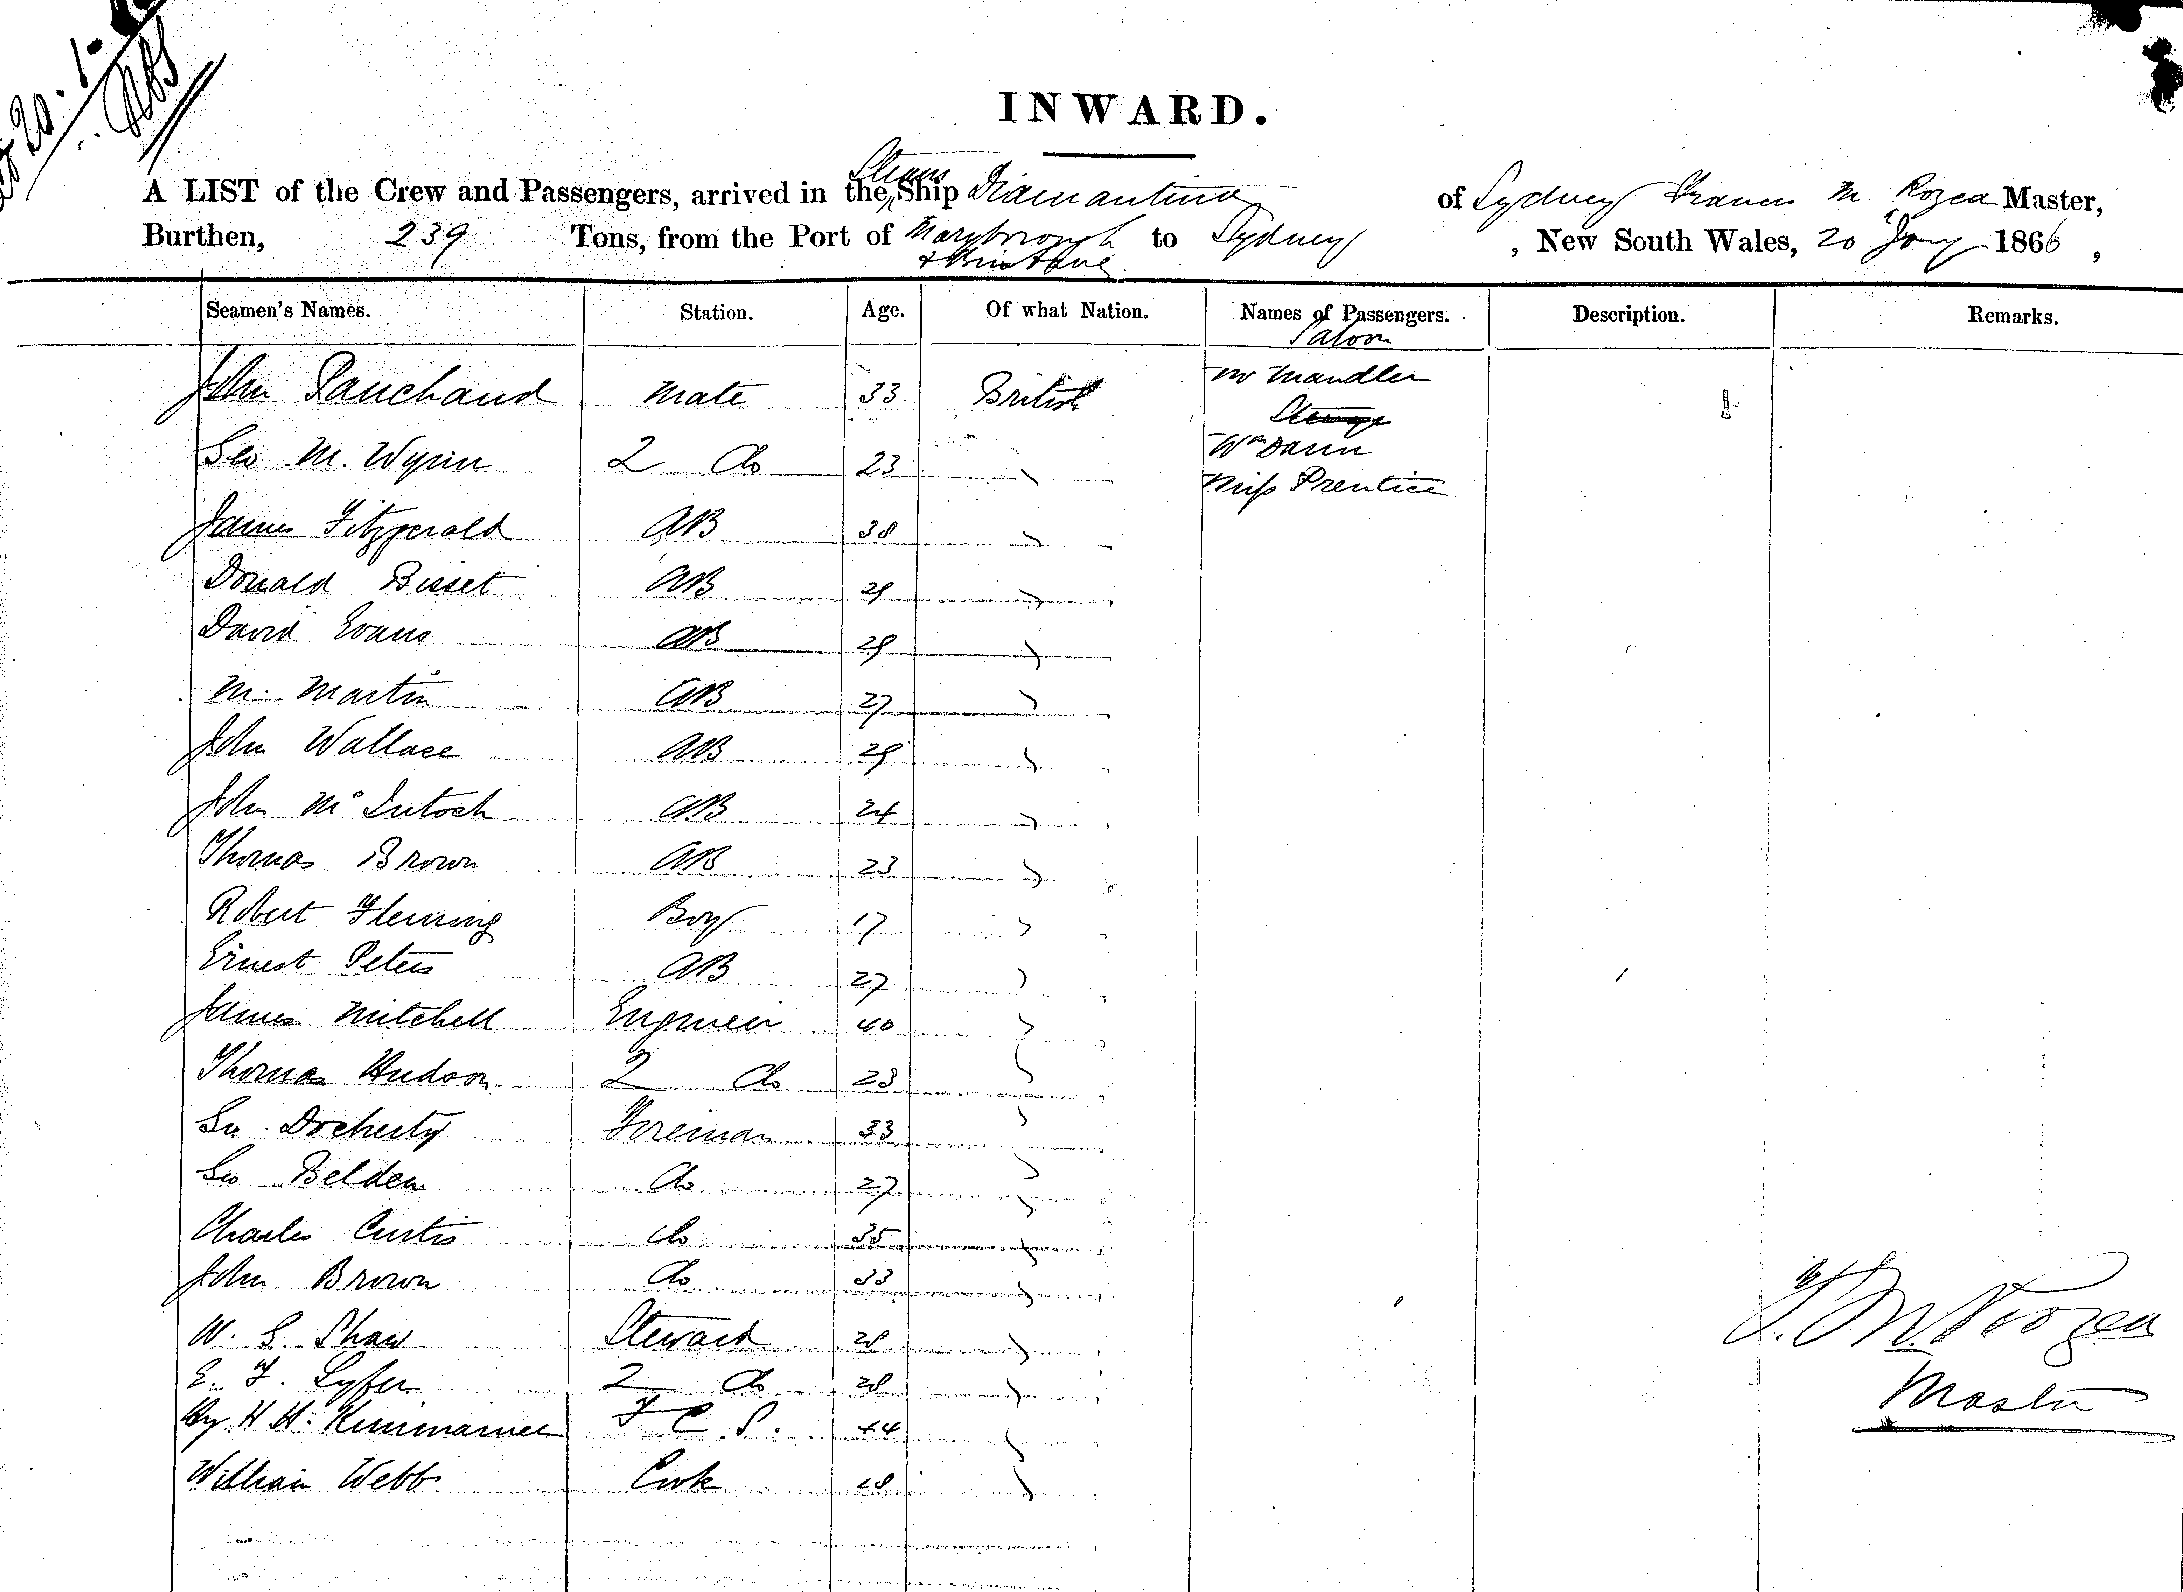 20.1.
INWARD.
A LIST of the Crew and Passengers, arrived in the Steam Ship Diamantina of Sydney Francis M Rozea Master,
Burthen, 239 Tons, from the Port of Maryborough to Sydney, New South Wales, 20 Jany 1866,
& Brisbane
Seamen's Names. Station. Age. Of what Nation. Names of Passengers. Description. Remarks.
Saloon
John Pauchaud Mate 33 British Mr Mandler
Steerage
Geo M. Wynn 2 Do 23 " Wm Dann
Miss Prentice
James Fitzgerald AB 38 "
Donald Bisset AB 29 "
David Evans AB 29 "
M. Martin AB 27 "
John Wallace AB 29 "
John McIntosh AB 24 "
Thomas Brown AB 23 "
Robert Fleming Boy 17 "
Ernest Peters AB 27 "
James Mitchell Engineer 40 "
Thomas Hudson 2 Do 23 "
Geo Docherty Fireman 33 "
Geo Belden Do 27 "
Charles Curtis Do 35 "
John Brown Do 33 "
W. G. Shaw Steward 28 "
E. F. Lyfer 2 Do 28 "
Hy H. H. F. C. S. 44 "
William Webb Cook 28 "
F. M. Rozea
Master